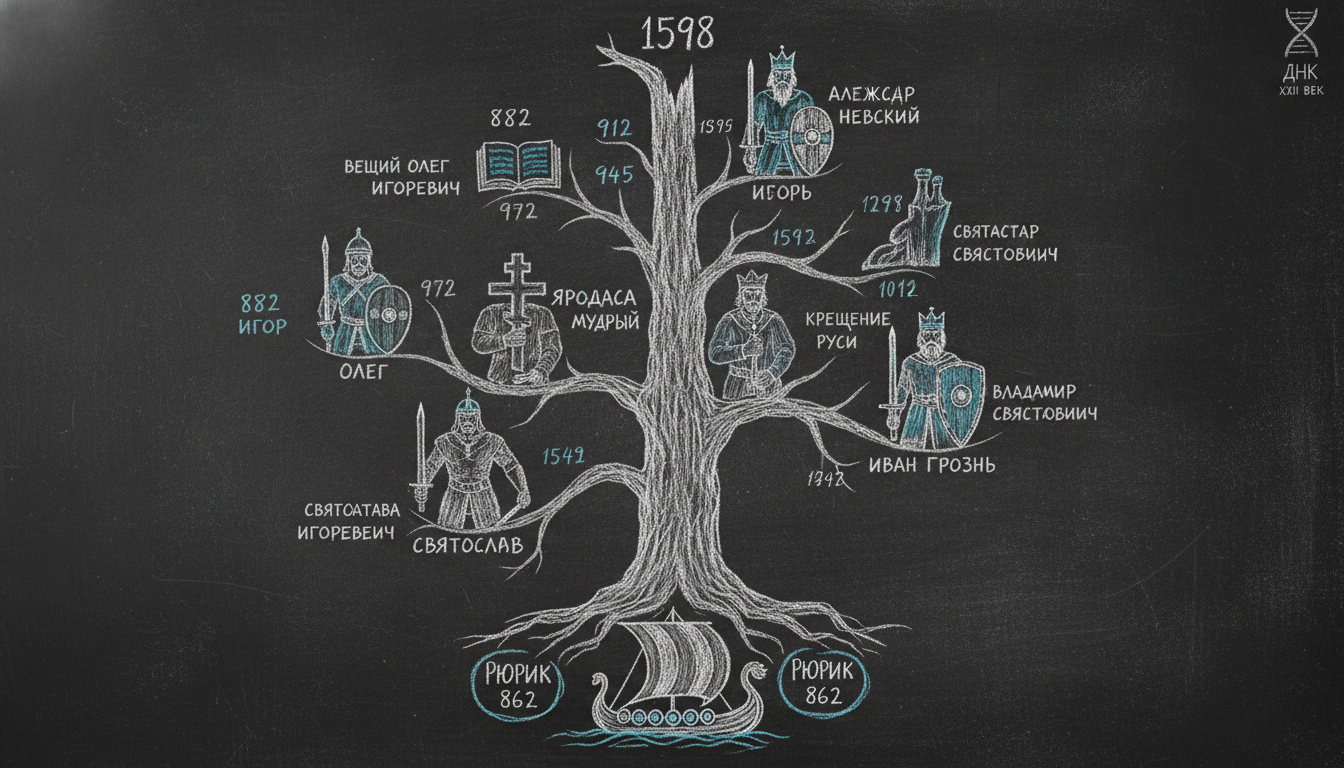 1598
ДНК
XXII ВЕК
882
ВЕЩИЙ ОЛЕГ
ИГОРЕВИЧ
972
912
945
1595
АЛЕЖСДР
НЕВСКИЙ
ИГОРЬ
1298
СВЯТАСТАР
СВЯСТОВИИЧ
1592
1012
882
ИГОР
ОЛЕГ
972
ЯРОДАСА
МУДРЫЙ
КРЕЩЕНИЕ
РУСИ
ВЛАДАМИР
СВЯСТОВИИЧ
ИВАН ГРОЗНЬ
1542
СВЯТОАТАВА
ИГОРЕВЕИЧ
СВЯТОСЛАВ
РЮРИК
862
РЮРИК
862